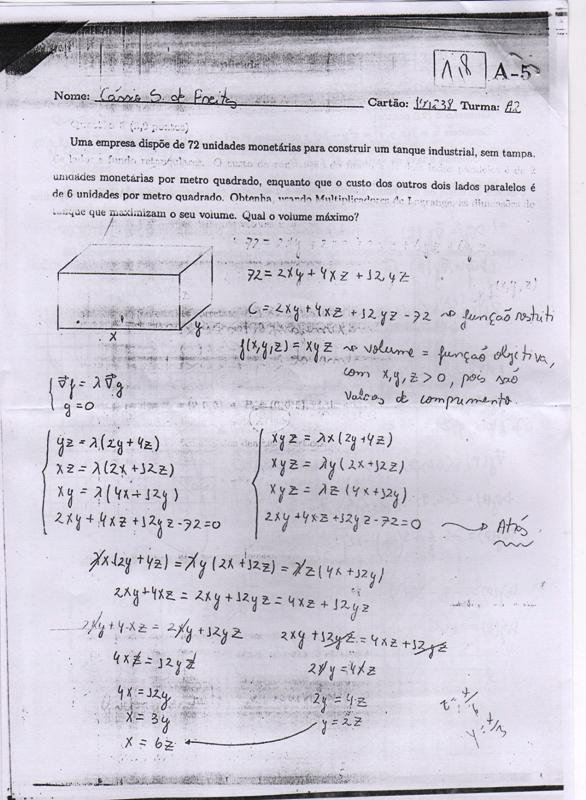 1,8 A-5
Nome: S. de Freitas Cartão: Turma: A2
Uma empresa dispõe de 72 unidades monetárias para construir um tanque industrial, sem tampa,
unidades monetárias por metro quadrado, enquanto que o custo dos outros dois lados paralelos é
de 6 unidades por metro quadrado. Obtenha, usando Multiplicadores de Lagrange, as dimensões do
tanque que maximizam o seu volume. Qual o volume máximo?
72 = 2xy + 4xz + 12yz
C = 2xy + 4xz + 12yz - 72 → função
f(x,y,z) = xyz → volume = função objetiva,
com x,y,z > 0, pois são
valores de comprimento.
x
y
∇f = λ∇g
g = 0
yz = λ(2y + 4z)
xz = λ(2x + 12z)
xy = λ(4x + 12y)
2xy + 4xz + 12yz - 72 = 0
xyz = λx(2y + 4z)
xyz = λy(2x + 12z)
xyz = λz(4x + 12y)
2xy + 4xz + 12yz - 72 = 0 → Atrás
λx(2y + 4z) = λy(2x + 12z) = λz(4x + 12y)
2xy + 4xz = 2xy + 12yz = 4xz + 12yz
2xy + 4xz = 2xy + 12yz
4xz = 12yz
4x = 12y
x = 3y
x = 6z
2xy + 12yz = 4xz + 12yz
2xy = 4xz
2y = 4z
y = 2z